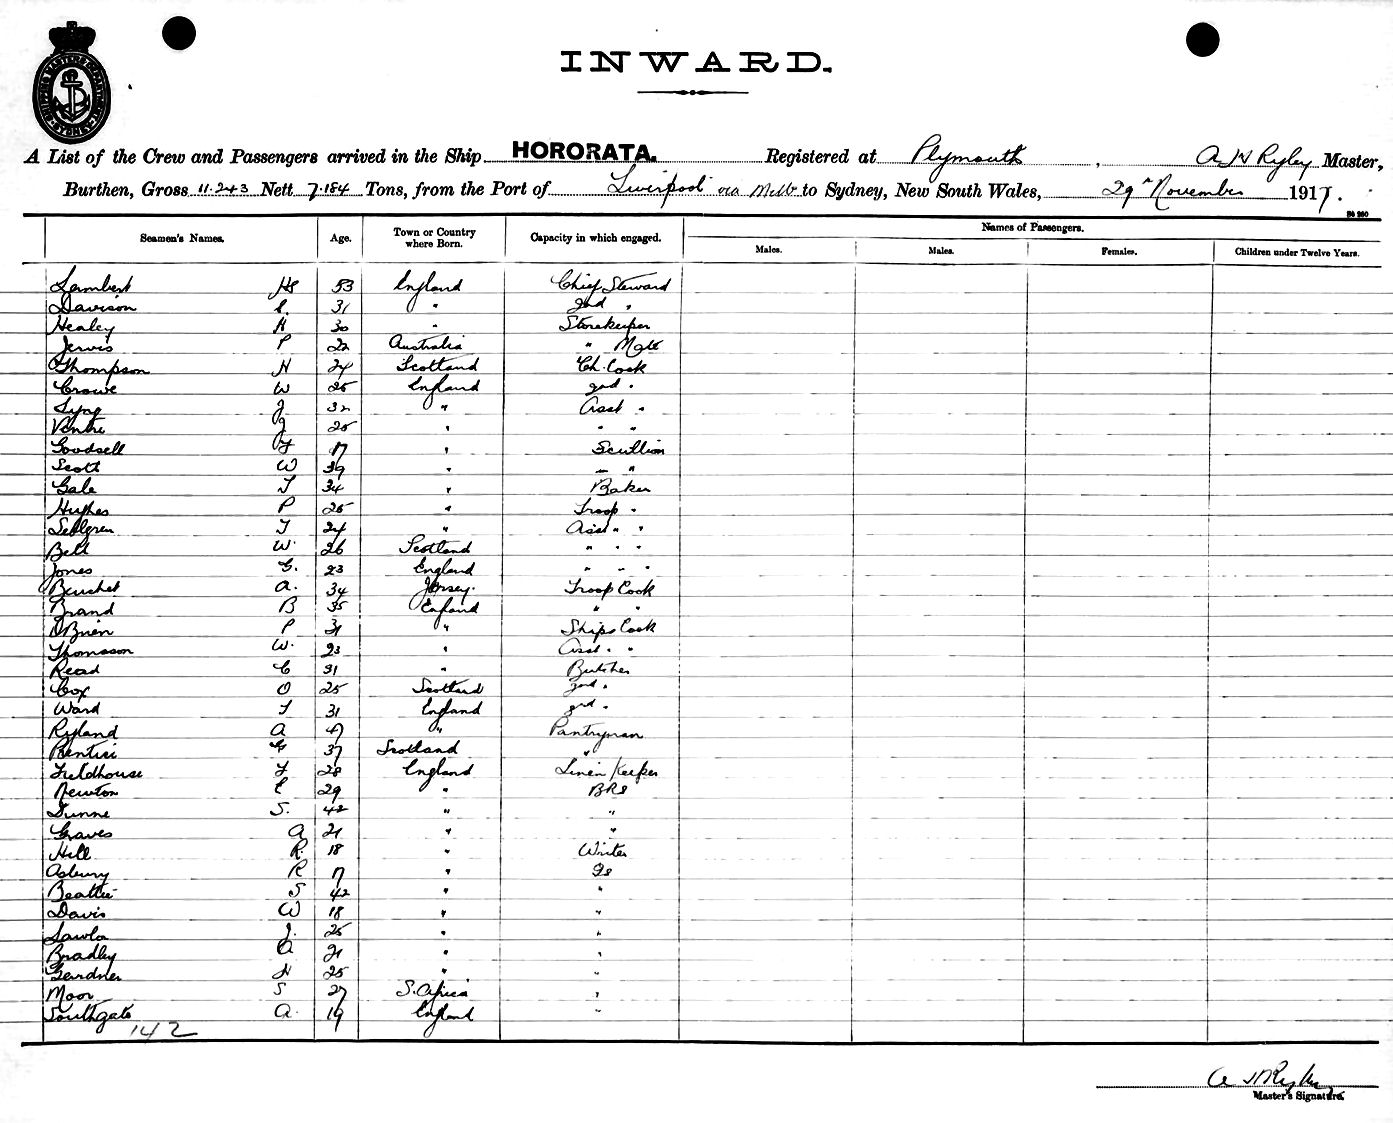 INWARD.
A List of the Crew and Passengers arrived in the Ship HORORATA. Registered at Plymouth, A H Ryley Master,
Burthen, Gross 11.243 Nett 7.184 Tons, from the Port of Liverpool via Melb to Sydney, New South Wales, 29th November 1917.
Seamen's Names. Age. Town or Country where Born. Capacity in which engaged. Names of Passengers.
Males. Males. Females. Children under Twelve Years.
Lambert 53 England Chief Steward
Davison 31 " 2nd "
Healey H 30 " Storekeeper
Jervis P 22 Australia " Mate
Thompson H 24 Scotland Ch. Cook
Crowe W 25 England 2nd "
J 32 " Asst "
J 25 " " "
Goodsell F 17 " Scullion
Scott W 39 " "
Gale T 34 " Baker
Hughes P 25 " Troop "
T 24 " Asst " "
Bell W. 26 Scotland " " "
Jones G. 23 England " " "
A. 34 Jersey. Troop Cook
Brand B 35 England " "
O'Brien P 31 " Ships Cook
Thomason W. 23 " Asst " "
Read C 31 " Butcher
Cox O 25 Scotland 2nd "
Ward T 31 England 3rd "
Ryland A 47 " Pantryman
37 Scotland "
Fieldhouse F 28 England Linen Keeper
Newton E 29 " BRS
Dunne S. 42 " "
Graves A 21 " "
Hill R. 18 " Winter
Asbury R 17 " GS
Beattie S 42 " "
Davis W 18 " "
Lawlor J. 25 " "
Bradley A 21 " "
Gerdner H 25 " "
Moor S 27 S. Africa "
Southgate A. 19 England "
142
A H Ryley
Master's Signature.